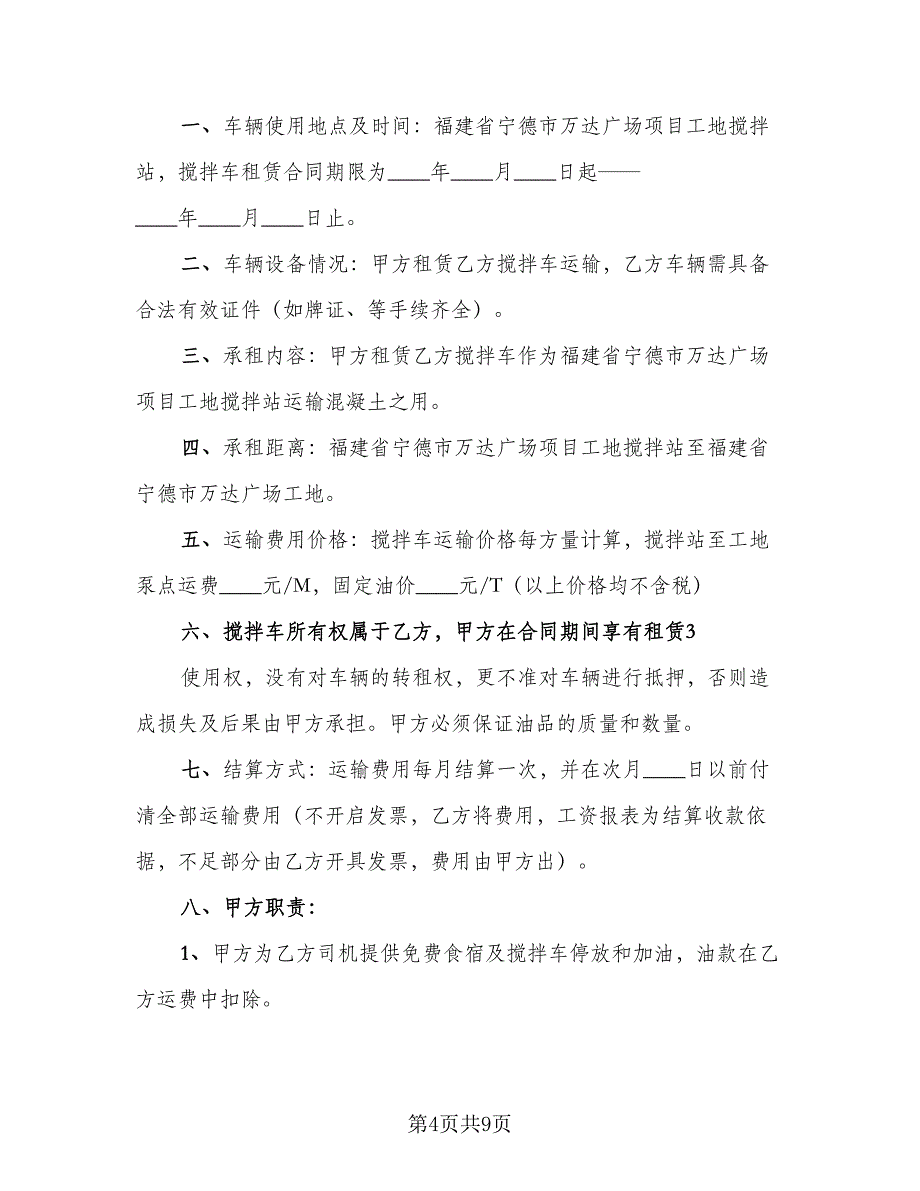 一、车辆使用地点及时间：福建省宁德市万达广场项目工地搅拌
站，搅拌车租赁合同期限为____年____月____日起——
____年____月____日止。
二、车辆设备情况：甲方租赁乙方搅拌车运输，乙方车辆需具备
合法有效证件（如牌证、等手续齐全）。
三、承租内容：甲方租赁乙方搅拌车作为福建省宁德市万达广场
项目工地搅拌站运输混凝土之用。
四、承租距离：福建省宁德市万达广场项目工地搅拌站至福建省
宁德市万达广场工地。
五、运输费用价格：搅拌车运输价格每方量计算，搅拌站至工地
泵点运费____元/M，固定油价____元/T（以上价格均不含税）
六、搅拌车所有权属于乙方，甲方在合同期间享有租赁3
使用权，没有对车辆的转租权，更不准对车辆进行抵押，否则造
成损失及后果由甲方承担。甲方必须保证油品的质量和数量。
七、结算方式：运输费用每月结算一次，并在次月____日以前付
清全部运输费用（不开启发票，乙方将费用，工资报表为结算收款依
据，不足部分由乙方开具发票，费用由甲方出）。
八、甲方职责：
1、甲方为乙方司机提供免费食宿及搅拌车停放和加油，油款在乙
方运费中扣除。
第4页共9页